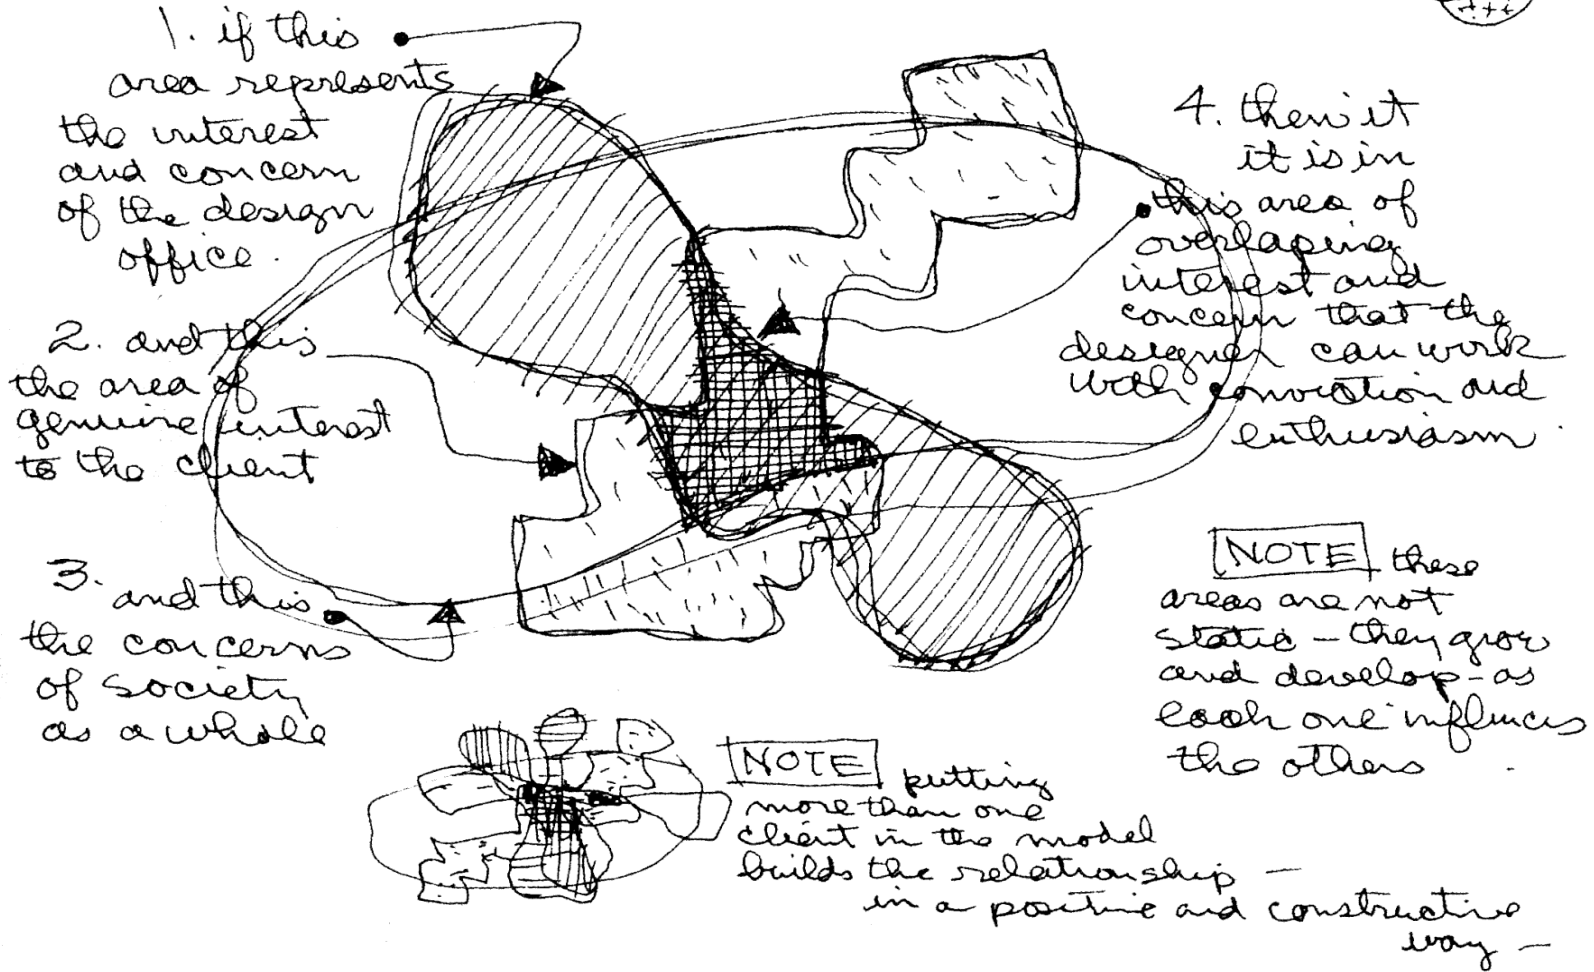 1. if this
area represents
the interest
and concern
of the design
office.
2. and this
the area of
genuine interest
to the client
3. and this
the concerns
of society
as a whole
4. then it
it is in
this area of
overlaping
interest and
concern that the
designer can work
with conviction and
enthusiasm.
NOTE these
areas are not
static - they grow
and develop - as
each one influences
the others
NOTE putting
more than one
client in the model
builds the relationship -
in a positive and constructive
way -